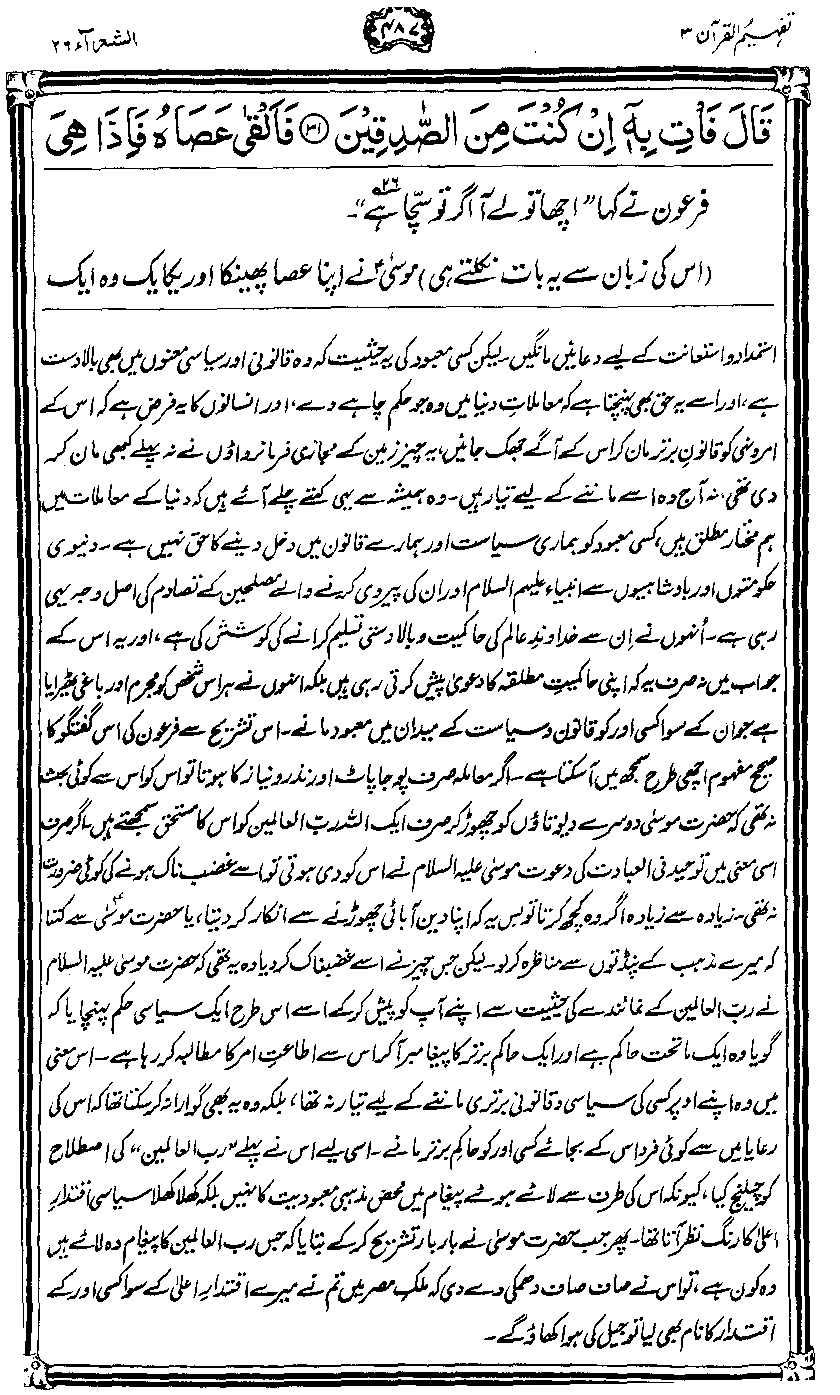 تفہیم القرآن ۳
۴۸۷
الشعرآء ۲۶
قَالَ فَاْتِ بِهٖۤ اِنْ كُنْتَ مِنَ الصّٰدِقِيْنَ ۳۱ فَاَلْقٰى عَصَاهُ فَاِذَا هِىَ
فرعون نے کہا ”اچھا تو لے آ اگر تو سچّا ہے۲۶“۔
(اس کی زبان سے یہ بات نکلتے ہی) موسیٰؑ نے اپنا عصا پھینکا اور یکایک وہ ایک
استمداد و استعانت کے لیے دعائیں مانگیں۔ لیکن کسی معبود کی یہ حیثیت کہ وہ قانونی اور سیاسی معنوں میں بھی بالادست
ہے، اور اسے یہ حق بھی پہنچتا ہے کہ معاملاتِ دنیا میں وہ جو حکم چاہے دے، اور انسانوں کا یہ فرض ہے کہ اس کے
امرونہی کو قانونِ برتر مان کر اس کے آگے جھک جائیں، یہ چیز زمین کے مجازی فرمانرواؤں نے نہ پہلے کبھی مان کر
دی تھی، نہ آج وہ اسے ماننے کے لیے تیار ہیں۔ وہ ہمیشہ سے یہی کہتے چلے آئے ہیں کہ دنیا کے معاملات میں
ہم مختار مطلق ہیں، کسی معبود کو ہماری سیاست اور ہمارے قانون میں دخل دینے کا حق نہیں ہے۔ دنیوی
حکومتوں اور بادشاہیوں سے انبیاء علیہم السلام اور ان کی پیروی کرنے والے مصلحین کے تصادم کی اصل وجہ یہی
رہی ہے۔ اُنہوں نے اِن سے خداوندِ عالم کی حاکمیت و بالادستی تسلیم کرانے کی کوشش کی ہے، اور یہ اس کے
جواب میں نہ صرف یہ کہ اپنی حاکمیتِ مطلقہ کا دعویٰ پیش کرتی رہی ہیں بلکہ انہوں نے ہر اس شخص کو مجرم اور باغی ٹھیرایا
ہے جو ان کے سوا کسی اور کو قانون و سیاست کے میدان میں معبود مانے۔ اس تشریح سے فرعون کی اس گفتگو کا
صحیح مفہوم اچھی طرح سمجھ میں آ سکتا ہے۔ اگر معاملہ صرف پوجا پاٹ اور نذر و نیاز کا ہوتا تو اس کو اس سے کوئی بحث
نہ تھی کہ حضرت موسیٰ دوسرے دیوتاؤں کو چھوڑ کر صرف ایک اللہ رب العالمین کو اس کا مستحق سمجھتے ہیں۔ اگر صرف
اسی معنی میں توحید فی العبادت کی دعوت موسیٰ علیہ السلام نے اس کو دی ہوتی تو اسے غضب ناک ہونے کی کوئی ضرورت
نہ تھی۔ زیادہ سے زیادہ اگر وہ کچھ کرتا تو بس یہ کہ اپنا دین آبائی چھوڑنے سے انکار کر دیتا، یا حضرت موسیٰؑ سے کہتا
کہ میرے مذہب کے پنڈتوں سے مناظرہ کر لو۔ لیکن جس چیز نے اسے غضبناک کر دیا وہ یہ تھی کہ حضرت موسیٰ علیہ السلام
نے ربّ العالمین کے نمائندے کی حیثیت سے اپنے آپ کو پیش کر کے اسے اس طرح ایک سیاسی حکم پہنچایا کہ
گویا وہ ایک ماتحت حاکم ہے اور ایک حاکمِ برتر کا پیغامبر آ کر اس سے اطاعتِ امر کا مطالبہ کر رہا ہے۔ اس معنی
میں وہ اپنے اوپر کسی کی سیاسی و قانونی برتری ماننے کے لیے تیار نہ تھا، بلکہ وہ یہ بھی گوارا نہ کر سکتا تھا کہ اس کی
رعایا میں سے کوئی فرد اس کے بجائے کسی اور کو حاکمِ برتر مانے۔ اسی لیے اس نے پہلے ”رب العالمین“ کی اصطلاح
کو چیلنج کیا، کیونکہ اس کی طرف سے لائے ہوئے پیغام میں محض مذہبی معبودیت کا نہیں بلکہ کھلا کھلا سیاسی اقتدارِ
اعلیٰ کا رنگ نظر آتا تھا۔ پھر جب حضرت موسیٰ نے بار بار تشریح کر کے بتایا کہ جس رب العالمین کا پیغام وہ لائے ہیں
وہ کون ہے، تو اس نے صاف صاف دھمکی دے دی کہ ملکِ مصر میں تم نے میرے اقتدارِ اعلیٰ کے سوا کسی اور کے
اقتدار کا نام بھی لیا تو جیل کی ہوا کھاؤ گے۔